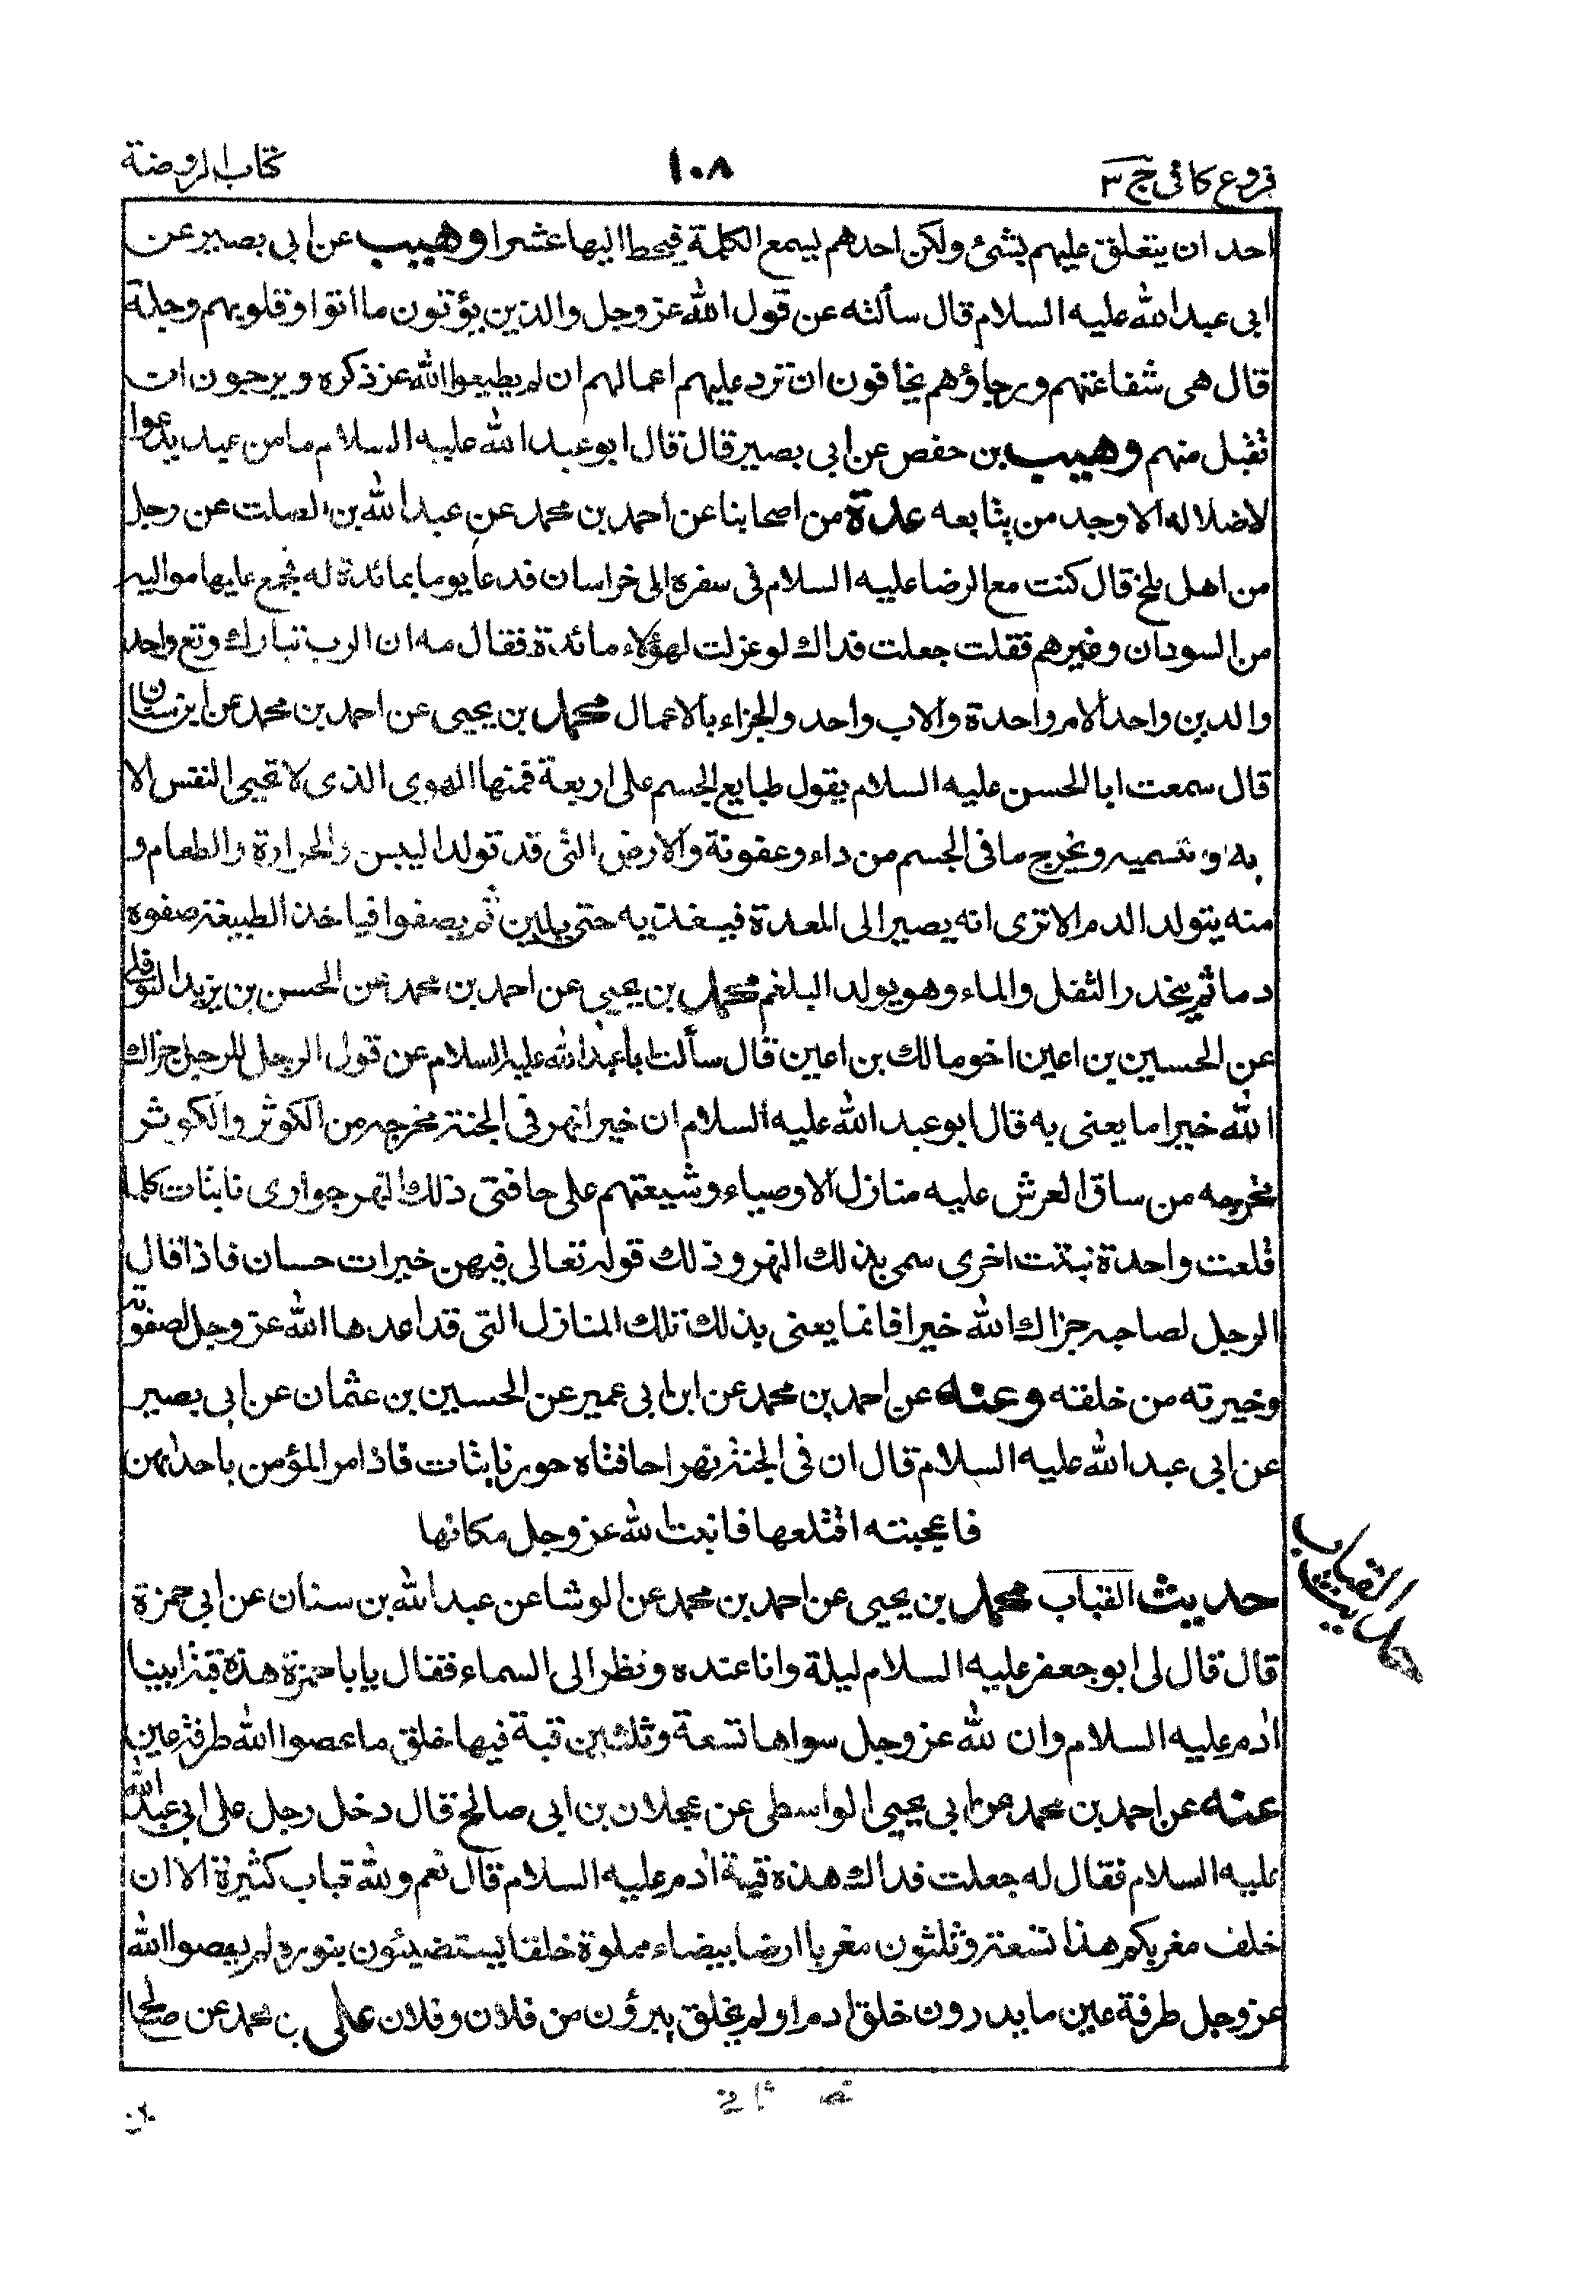 فروع كافى ج ٣
١٠٨
كتاب الروضة
احد ان يتعلق عليهم بشئ ولكن احدهم ليسمع الكلمة فيحط اليها عشرا وهيب عن ابى بصير عن
ابى عبد الله عليه السلام قال سألته عن قول الله عز وجل والذين يؤتون ما اتوا وقلوبهم وجلة
قال هى شفاعتهم ورجاؤهم يخافون ان ترد عليهم اعمالهم ان لم يطيعوا الله عز ذكره ويرجون ان
تقبل منهم وهيب بن حفص عن ابى بصير قال قال ابو عبد الله عليه السلام ما من عبد يدعوا
لاضلاله الا وجد من يتابعه عدة من اصحابنا عن احمد بن محمد عن عبد الله بن الصلت عن رجل
من اهل بلخ قال كنت مع الرضا عليه السلام فى سفره الى خراسان فدعا يوما بمائدة له فجمع عليها مواليه
من السودان وغيرهم فقلت جعلت فداك لو عزلت لهؤلاء مائدة فقال مه ان الرب تبارك وتع واحد
والدين واحد الامر واحدة والاب واحد والجزاء بالاعمال محمد بن يحيى عن احمد بن محمد عن ابن سنان
قال سمعت ابا الحسن عليه السلام يقول طبايع الجسم على اربعة فمنها الهوى الذى لا تحيى النفس الا
به و نسميه ويخرج ما فى الجسم من داء وعفونة والارض التى قد تولد اليبس والحرارة والطعام و
منه يتولد الدم الا ترى انه يصير الى المعدة فيغذيه حتى يلين ثم يصفوا فياخذ الطبيعة صفوه
دما ثم ينحدر الثفل والماء وهو يولد البلغم محمد بن يحيى عن احمد بن محمد عن الحسن بن يزيد النوفلى
عن الحسين بن اعين اخو مالك بن اعين قال سألت ابا عبد الله عليه السلام عن قول الرجل للرجل جزاك
الله خيرا ما يعنى به قال ابو عبد الله عليه السلام ان خيرا نهر فى الجنة مخرجه من الكوثر والكوثر
مخرجه من ساق العرش عليه منازل الاوصياء وشيعتهم على حافتى ذلك النهر جوارى نابتات كلما
قلعت واحدة نبتت اخرى سمى بذلك النهر وذلك قوله تعالى فيهن خيرات حسان فاذا قال
الرجل لصاحبه جزاك الله خيرا فانما يعنى بذلك تلك المنازل التى قد اعدها الله عز وجل لصفوته
وخيرته من خلقه وعنه عن احمد بن محمد عن ابن ابى عمير عن الحسين بن عثمان عن ابى بصير
عن ابى عبد الله عليه السلام قال ان فى الجنة نهرا حافتاه حور نابتات فاذا مر المؤمن باحديهن
فاعجبته اقتلعها فانبت الله عز وجل مكانها
حديث القباب محمد بن يحيى عن احمد بن محمد عن الوشا عن عبد الله بن سنان عن ابى حمزة
حديث القباب
قال قال لى ابو جعفر عليه السلام ليلة وانا عنده ونظر الى السماء فقال يا با حمزة هذه قبة ابينا
ادم عليه السلام وان لله عز وجل سواها تسعة وثلثين قبة فيها خلق ما عصوا الله طرفة عين
عنه عن احمد بن محمد عن ابى يحيى الواسطى عن عجلان بن ابى صالح قال دخل رجل على ابى عبد الله
عليه السلام فقال له جعلت فداك هذه قبة ادم عليه السلام قال نعم ولله قباب كثيرة الا ان
خلف مغربكم هذا تسعة وثلثون مغربا ارضا بيضاء مملوة خلقا يستضيئون بنوره لم يعصوا الله
عز وجل طرفة عين ما يدرون خلق ادم او لم يخلق يبرؤن من فلان وفلان على بن محمد عن صالح